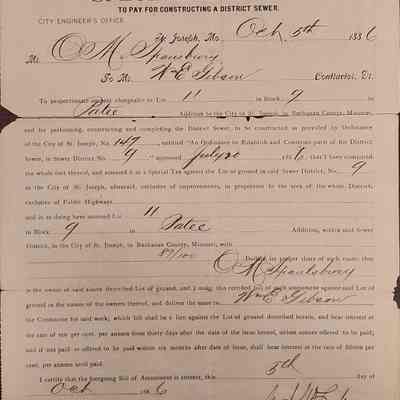 TO PAY FOR CONSTRUCTING A DISTRICT SEWER.
CITY ENGINEER'S OFFICE.
St. Joseph, Mo. Oct 5th 1886
Mr O M Spaulsbury
To Mr. W E Gibson Contractor, Dr.
To proportionate share chargeable to Lot 11 in Block 9 in
Patee Addition to the City of St. Joseph, in Buchanan County, Missouri,
and for performing, constructing and completing the District Sewer, to be constructed as provided by Ordinance
of the City of St. Joseph, No. 147, entitled "An Ordinance to Establish and Construct parts of the District
Sewer, in Sewer District No. 9 " approved July 20 1886, that I have computed
the whole cost thereof, and assessed it as a Special Tax against the Lot of ground in said Sewer District, No. 9
in the City of St. Joseph, aforesaid, exclusive of improvements, in proportion to the area of the whole District,
exclusive of Public Highways
and in so doing have assessed Lot 11
in Block 9 in Patee Addition, within said Sewer
District, in the City of St. Joseph, in Buchanan County, Missouri, with
/100 Dollars, its proper share of such costs; that
O M Spaulsbury
is the owner of said above described Lot of Ground, and I assign this certified bill of such assessment against said Lot of
ground in the names of the owners thereof, and deliver the same to Wm E Gibson
the Contractor for said work; which bill shall be a lien against the Lot of ground described herein, and bear interest at
the rate of ten per cent. per annum from thirty days after the date of the issue hereof, unless sooner offered to be paid;
and if not paid or offered to be paid within six months after date of issue, shall bear interest at the rate of fifteen per
cent. per annum until paid.
I certify that the foregoing Bill of Assessment is correct, this 5th day of
Oct 1886